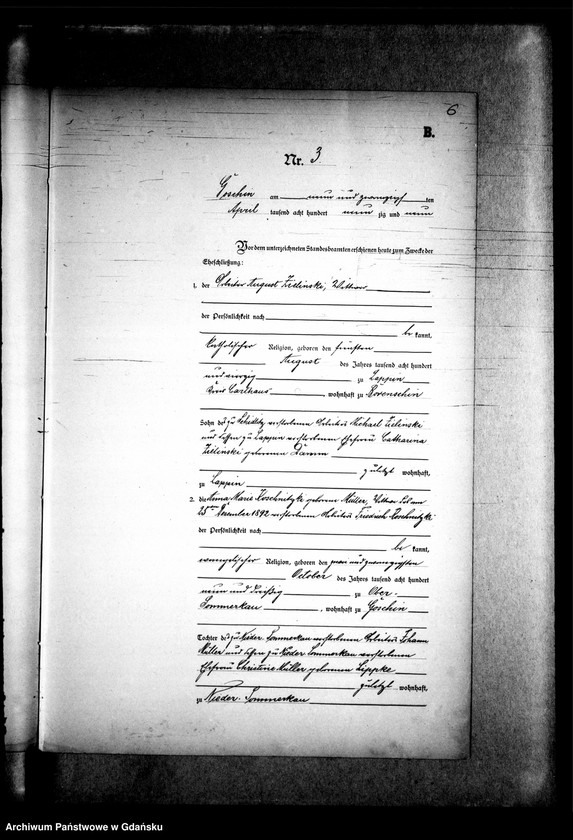 6
B.
Nr. 3
Goschin am neun und zwanzigsten
April tausend acht hundert neun zig und neun
Vor dem unterzeichneten Standesbeamten erschienen heute zum Zwecke der
Eheschließung:
1. der Arbeiter August Zielinski, Wittwer
der Persönlichkeit nach
be kannt,
katholischer Religion, geboren den fünften
August des Jahres tausend acht hundert
und vierzig zu Lappin
Kreis Carthaus, wohnhaft zu
Sohn des zu verstorbenen Arbeiters Michael Zielinski
und dessen zu Lappin verstorbenen Ehefrau Catharina
Zielinski geborenen Damm
zuletzt wohnhaft,
zu Lappin
2. die Anna Marie Koschnitzke geborene Müller, Wittwe des am
25ten Dezember 1892 verstorbenen Arbeiters Friedrich Koschnitzki
der Persönlichkeit nach
be kannt,
evangelischer Religion, geboren den zwei und zwanzigsten
October des Jahres tausend acht hundert
neun und dreißig zu Ober-
Sommerkau, wohnhaft zu Goschin
Tochter des zu Nieder Sommerkau verstorbenen Arbeiters Johann
Müller und dessen zu Nieder Sommerkau verstorbenen
Ehefrau Christine Müller geborenen Lippke
zuletzt wohnhaft,
zu Nieder-Sommerkau
Archiwum Państwowe w Gdańsku